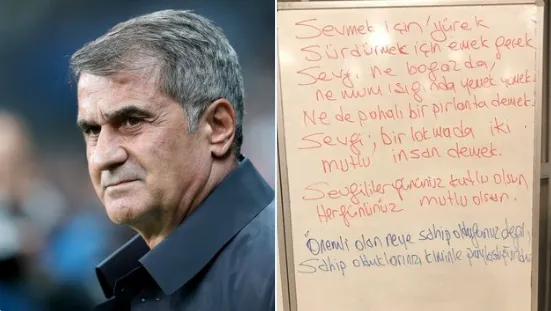 Sevmek için yürek
Sürdürmek için emek gerek
Sevgi ne boğazda,
ne mum ışığında yemek yemek
Ne de pahalı bir pırlanta demek.
Sevgi; bir lokmada iki
mutlu insan demek.
Sevgililer gününüz kutlu olsun
Hergününüz mutlu olsun.
Önemli olan neye sahip olduğunuz değil,
Sahip olduklarınızı kiminle paylaştığınızdır